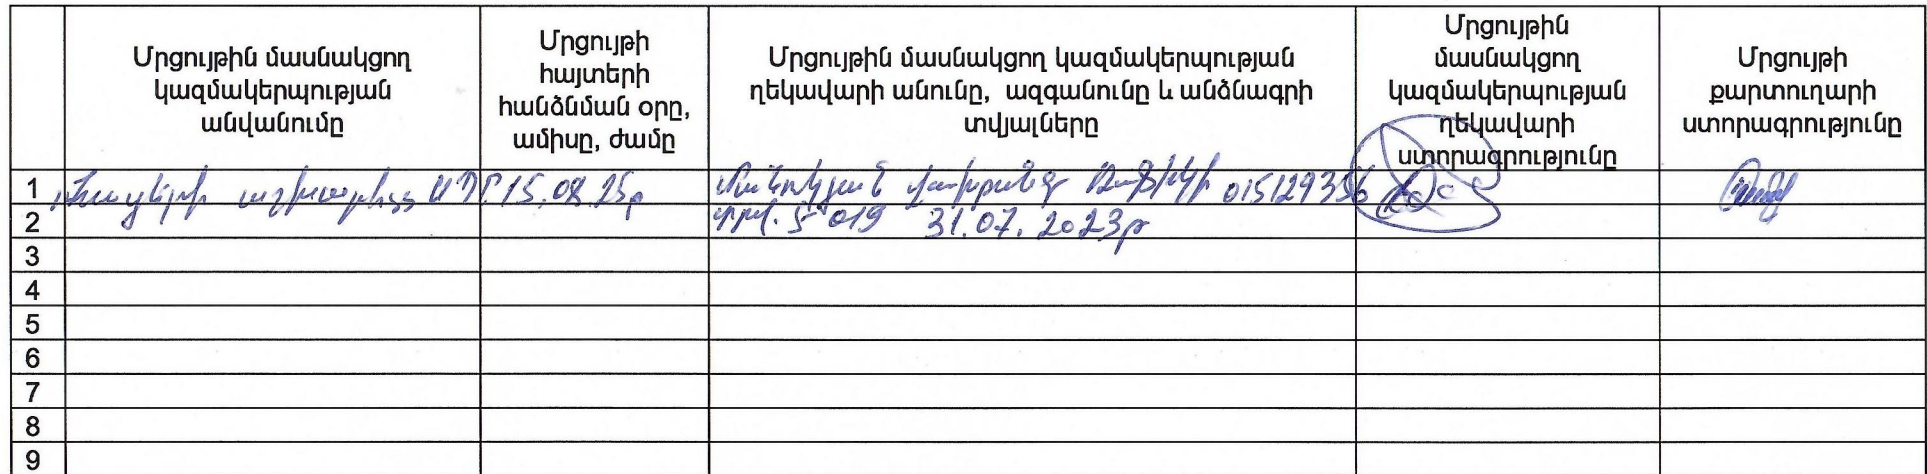 Մրցույթին մասնակցող
կազմակերպության
անվանումը
Մրցույթի
հայտերի
հանձնման օրը,
ամիսը, ժամը
Մրցույթին մասնակցող կազմակերպության
ղեկավարի անունը, ազգանունը և անձնագրի
տվյալները
Մրցույթին
մասնակցող
կազմակերպության
ղեկավարի
ստորագրությունը
Մրցույթի
քարտուղարի
ստորագրությունը
1 աշխարհ 15.08.25թ Մանուկյան 015129356
2 տրվ. 019 31.07.2023թ
3
4
5
6
7
8
9